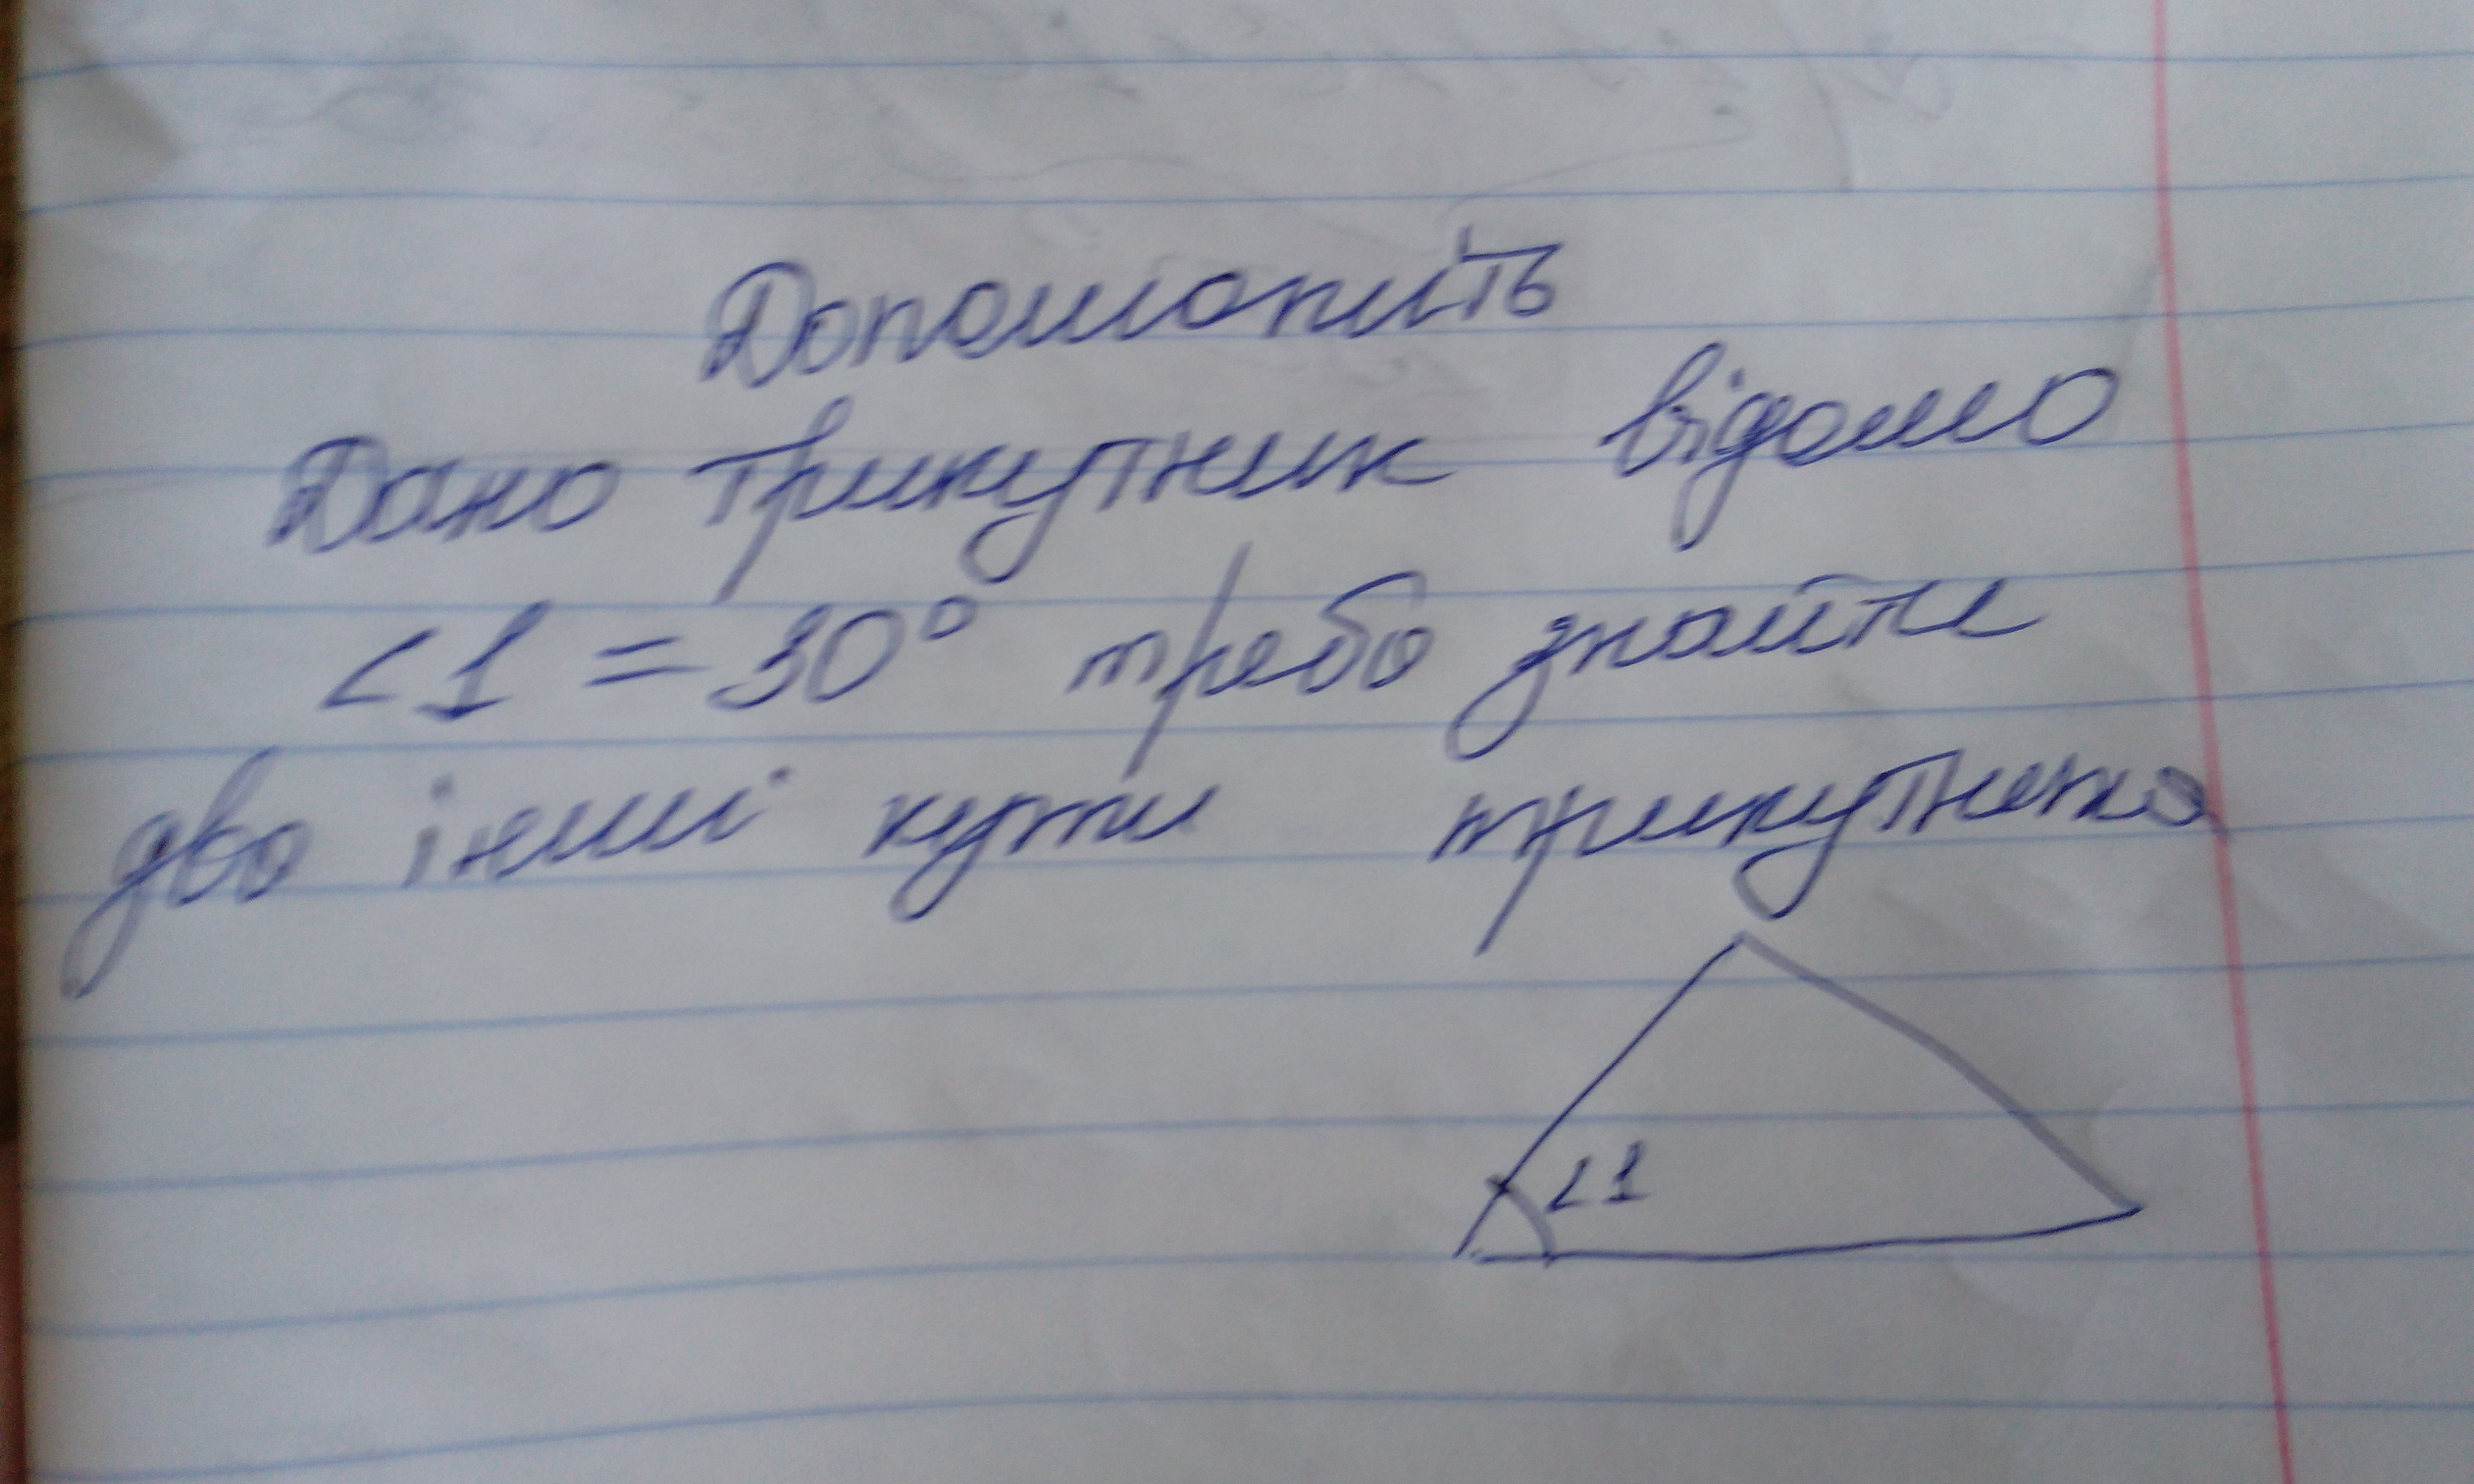 Допоможіть
Дано трикутник відомо
<1 = 30° треба знайти
два інші кути трикутника
<1